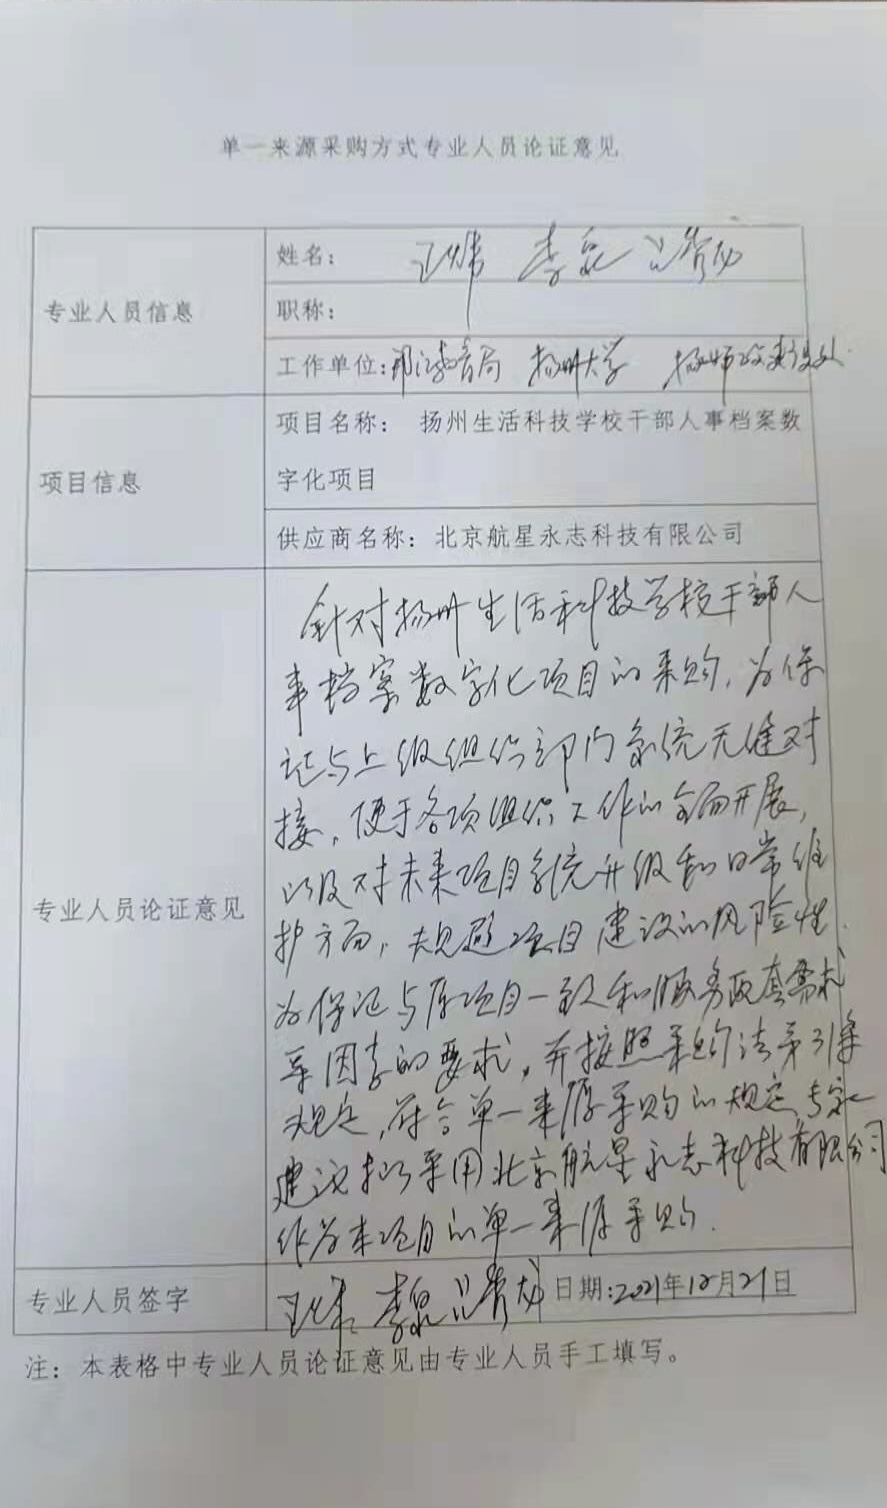 单一来源采购方式专业人员论证意见
专业人员信息
姓名：
职称：
工作单位：邗江教育局 扬州大学
项目信息
项目名称： 扬州生活科技学校干部人事档案数
字化项目
供应商名称：北京航星永志科技有限公司
专业人员论证意见
针对扬州生活科技学校干部人
事档案数字化项目的采购，为保
证与上级组织部门系统无缝对
接，便于各项组织工作的全面开展，
以及对未来项目系统升级和日常维
护方面，规避项目建设的风险性．
为保证与原项目一致和服务配套需求
等因素的要求，并按照采购法第31条
规定，符合单一来源采购的规定，专家
建议拟采用北京航星永志科技有限公司
作为本项目的单一来源采购．
专业人员签字
日期：2021年12月21日
注：本表格中专业人员论证意见由专业人员手工填写。